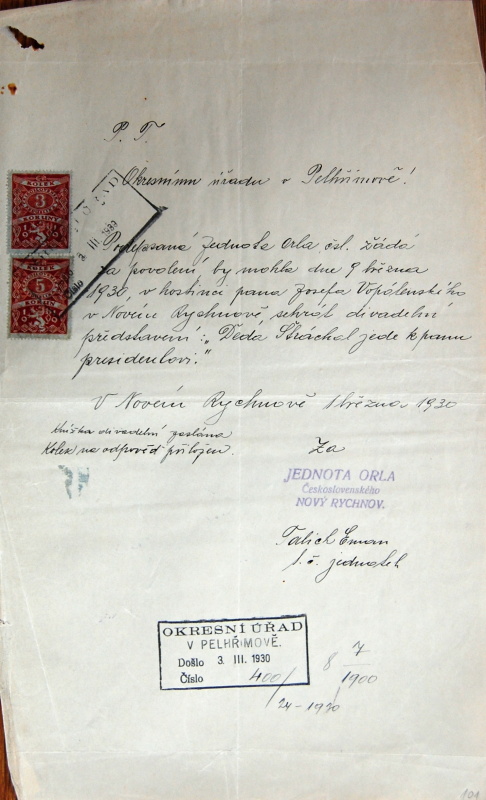 P. T.
Okresnímu úřadu v Pelhřimově!
KOLEK
3
KORUNY
KOLEK
5
KORUN
3 III 1930
Číslo
Podepsaná jednota Orla čsl. žádá
za povolení by mohla dne 9 března
1930, v hostinci pana Josefa Vopálenského
v Novém Rychnově sehrát divadelní
představení: „Děda Stráchal jede k panu
presidentovi."
V Novém Rychnově 1 března 1930
Knížka divadelní zaslána
Kolek na odpověď přiložen.
Za
JEDNOTA ORLA
Československého
NOVÝ RYCHNOV.
Talich Eman
t. č. jednatel
OKRESNÍ ÚŘAD
V PELHŘIMOVĚ.
Došlo 3. III. 1930
Číslo 400/
8 7
1900
24-1930
101